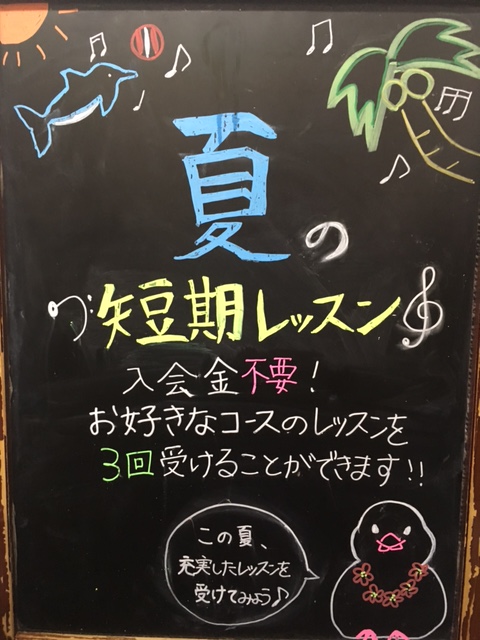 夏の
短期レッスン
入会金不要!
お好きなコースのレッスンを
3回受けることができます!!
この夏、
充実したレッスンを
受けてみよう♪